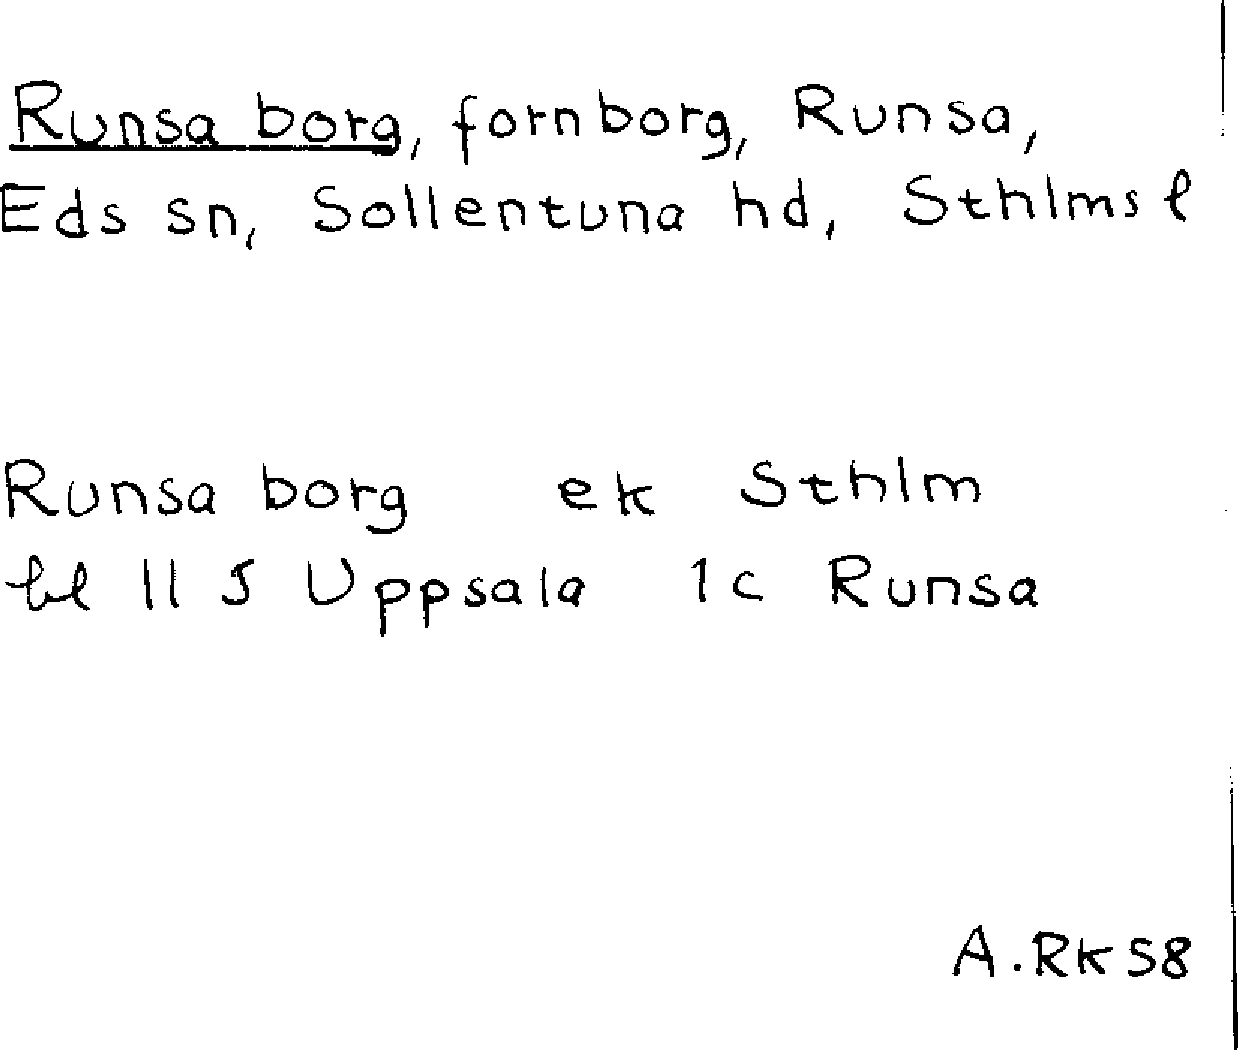 Runsa borg, fornborg, Runsa,
Eds sn, Sollentuna hd, Sthlms l
Runsa borg ek Sthlm
bl 11 5 Uppsala 1c Runsa
A.RK58